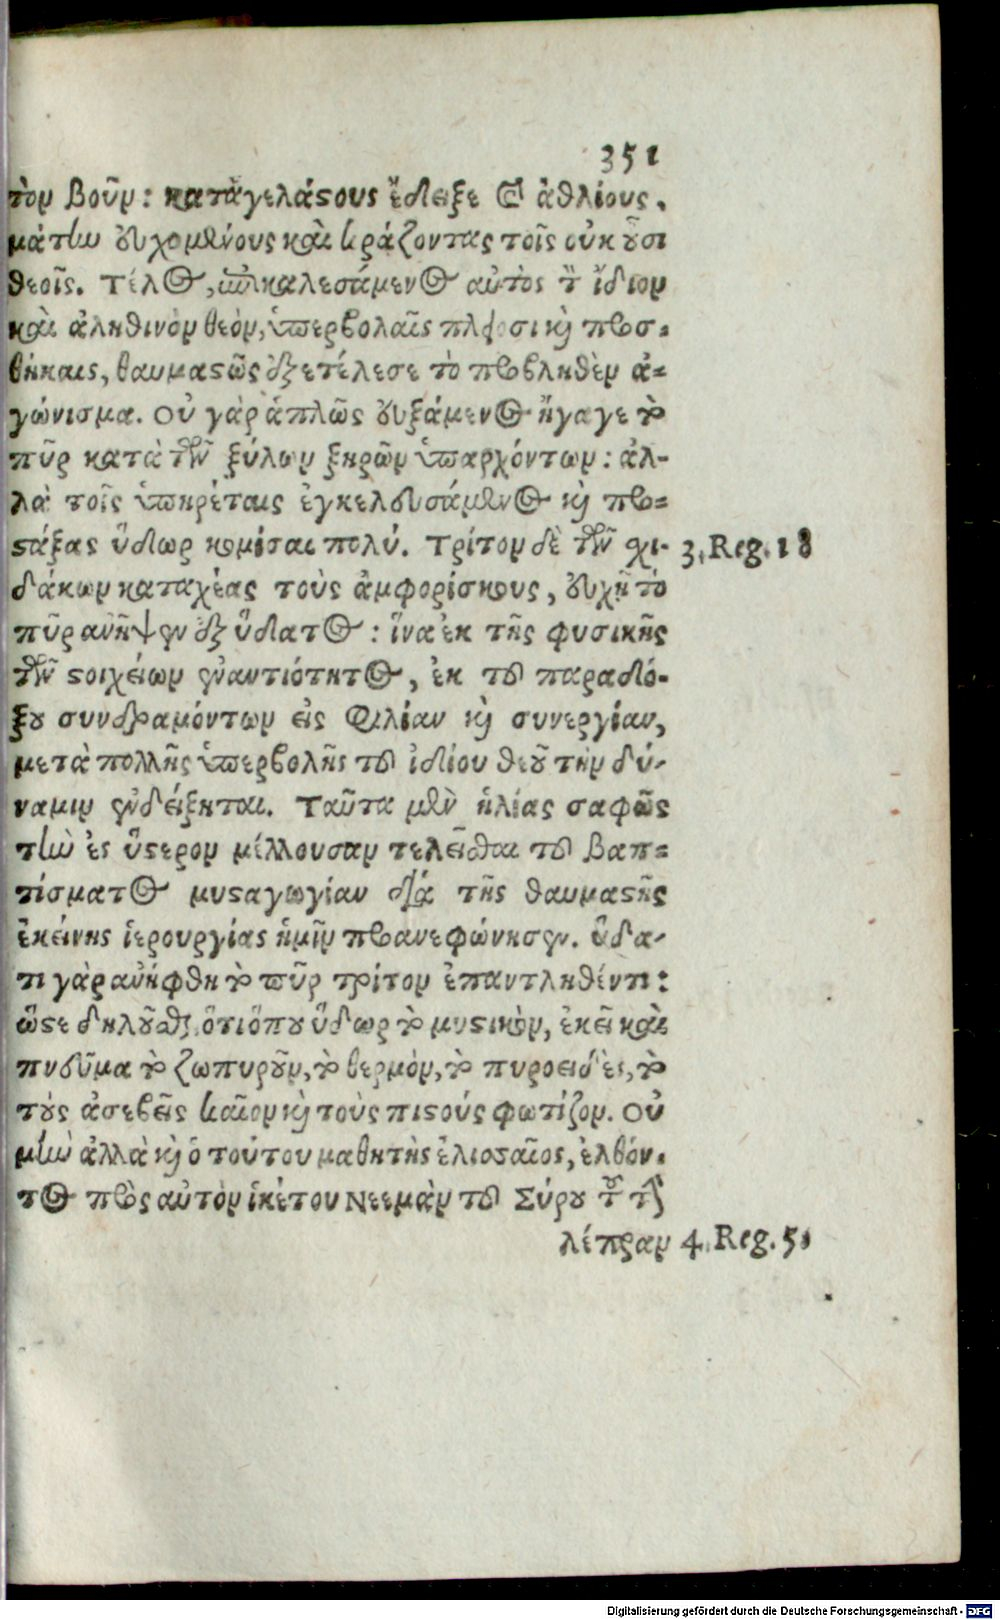 351
τὸν βοῦν: καταγελάστους ἔδειξε τοὺς ἀθλίους,
μάτην εὐχομένους καὶ κράζοντας τοῖς οὐκ οὖσι
θεοῖς. Τέλος, ἐπικαλεσάμενος αὐτὸς τὸν ἴδιον
καὶ ἀληθινὸν θεὸν, ὑπερβολαῖς πλείοσι καὶ προσ-
θήκαις, θαυμαστῶς ἐξετέλεσε τὸ προβληθὲν ἀ-
γώνισμα. Οὐ γὰρ ἁπλῶς εὐξάμενος ἤγαγε τὸ
πῦρ κατὰ τῶν ξύλων ξηρῶν ὑπαρχόντων: ἀλ-
λὰ τοῖς ὑπηρέταις ἐγκελευσάμενος καὶ προ-
στάξας ὕδωρ κομίσαι πολύ. Τρίτον δὲ τῶν σχι- 3. Reg. 18
δάκων καταχέας τοὺς ἀμφορίσκους, εὐχῇ τὸ
πῦρ ἀνῆψεν ἐξ ὕδατος: ἵνα ἐκ τῆς φυσικῆς
τῶν στοιχείων ἐναντιότητος, ἐκ τοῦ παραδό-
ξου συνδραμόντων εἰς φιλίαν καὶ συνεργίαν,
μετὰ πολλῆς ὑπερβολῆς τοῦ ἰδίου θεοῦ τὴν δύ-
ναμιν ἐνδείξηται. Ταῦτα μὲν ἡλίας σαφῶς
τὴν ἐς ὕστερον μέλλουσαν τελεῖσθαι τοῦ βαπ-
τίσματος μυσταγωγίαν διὰ τῆς θαυμαστῆς
ἐκείνης ἱερουργίας ἡμῖν προανεφώνησεν. ὕδα-
τι γὰρ ἀνήφθη τὸ πῦρ τρίτον ἐπαντληθέντι:
ὥστε δηλοῦσθαι ὅτι ὅπου ὕδωρ τὸ μυστικὸν, ἐκεῖ καὶ
πνεῦμα τὸ ζωπυροῦν, τὸ θερμὸν, τὸ πυροειδὲς, τὸ
τοὺς ἀσεβεῖς καῖον καὶ τοὺς πιστούς φωτίζον. Οὐ
μὴν ἀλλὰ καὶ ὁ τούτου μαθητὴς ἐλισσαῖος, ἐλθόν-
τος πρὸς αὐτὸν ἱκέτου Νεεμὰν τοῦ Σύρου τοῦ τὴν
λέπραν 4. Reg. 5.
Digitalisierung gefördert durch die Deutsche Forschungsgemeinschaft - DFG